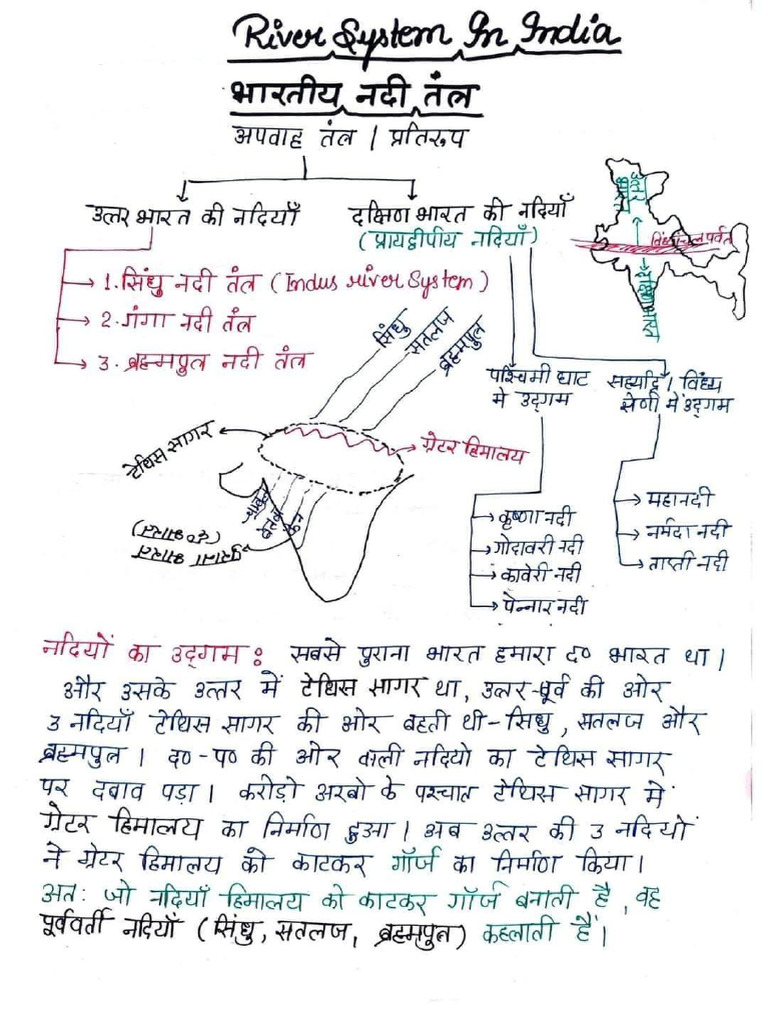 River System In India
भारतीय नदी तंत्र
अपवाह तंत्र / प्रतिरूप
उत्तर भारत की नदियाँ
दक्षिण भारत की नदियाँ
(प्रायद्वीपीय नदियाँ)
उत्तर भारत
विंध्याचल पर्वत
दक्षिण भारत
1. सिंधु नदी तंत्र (Indus river System)
2. गंगा नदी तंत्र
3. ब्रह्मपुत्र नदी तंत्र
सिंधु
सतलज
ब्रह्मपुत्र
पश्चिमी घाट
मे उद्गम
सह्याद्रि / विंध्य
श्रेणी में उद्गम
टेथिस सागर
ग्रेटर हिमालय
चम्बल
बेतवा
केन
पुराना भारत
(द० भारत)
कृष्णा नदी
गोदावरी नदी
कावेरी नदी
पेन्नार नदी
महानदी
नर्मदा नदी
ताप्ती नदी
नदियों का उद्गम : सबसे पुराना भारत हमारा द० भारत था।
और उसके उत्तर में टेथिस सागर था, उत्तर-पूर्व की ओर
3 नदियाँ टेथिस सागर की ओर बहती थी - सिंधु, सतलज और
ब्रह्मपुत्र। द०-प० की ओर वाली नदियो का टेथिस सागर
पर दबाव पड़ा। करोड़ो अरबो के पश्चात टेथिस सागर में
ग्रेटर हिमालय का निर्माण हुआ। अब उत्तर की 3 नदियों
ने ग्रेटर हिमालय को काटकर गॉर्ज का निर्माण किया।
अतः जो नदियाँ हिमालय को काटकर गॉर्ज बनाती है, वह
पूर्ववर्ती नदियाँ (सिंधु, सतलज, ब्रह्मपुत्र) कहलाती हैं।